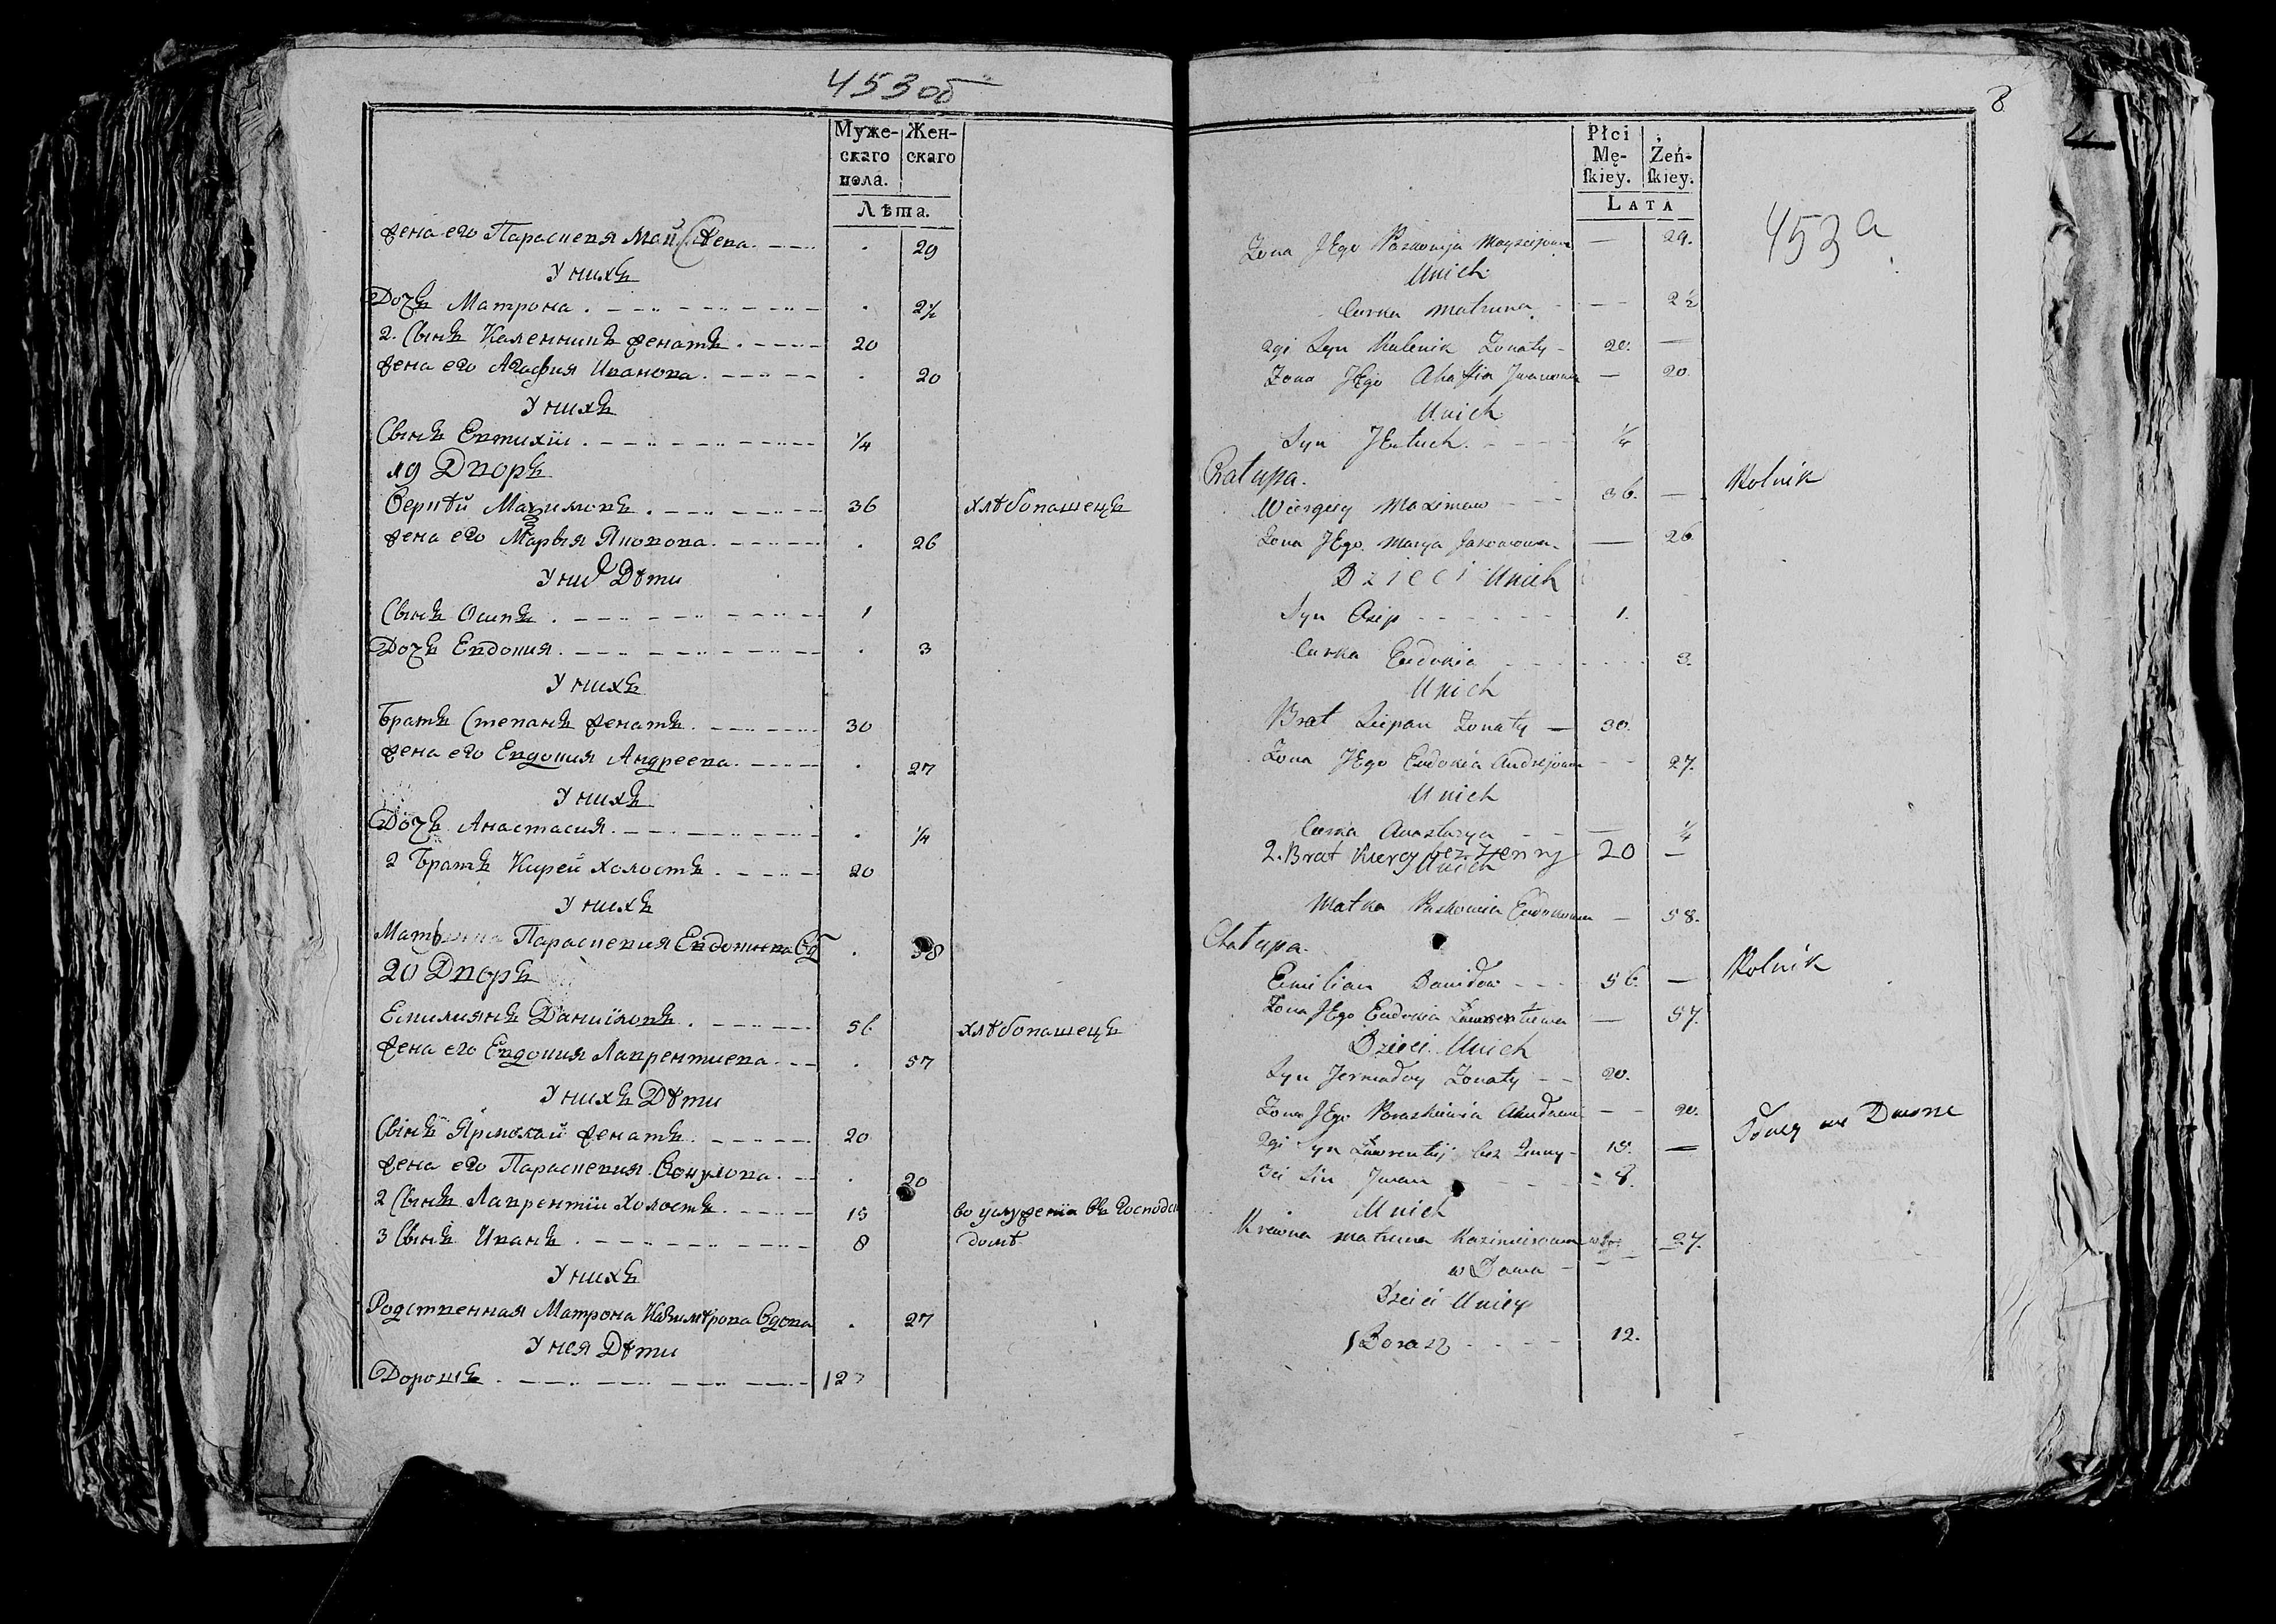 453об
Муже- Жен-
скаго скаго
пола.
Лѣта.
жена его Параскевя Мойсѣева . 29
У нихъ
Дочъ Матрона . 2½
2. Сынъ Каленникъ женатъ . 20
жена его Агафия Иванова . 20
У нихъ
Сынъ Евтихїи . ¼
19 Дворъ
Сергѣй Махимовъ . 36 хлѣбопашецъ
жена его Марья Яковова . 26
У них Дѣти
Сынъ Осипъ . 1
Дочъ Евдокия . 3
У нихъ
Братъ Степанъ женатъ . 30
жена его Евдокия Андреева . 27
У нихъ
Дочъ Анастасия . ¼
2 Братъ Кирей холостъ . 20
У нихъ
Параскевия . 58
20 Дворъ
Емилиянъ Даниловъ . 56 хлѣбопашецъ
жена его Евдокия Лаврентиева . 57
У нихъ Дѣти
Сынъ Ярмолай женатъ . 20
жена его Параскевия . 20
2 Сынъ Лаврентїи Холостъ . 15 во услужениї въ Господск
3 Сынъ Иванъ . 8 домѣ
У нихъ
Родственная Матрона Казимѣрова Вдова . 27
У нея Дѣти
Дорошъ . 12
8
Płci
Mę- Żeń-
ſkiey. ſkiey.
LATA
453а
Zona JEgo Paskowija Moyziejowa — 29.
Unich
Curka Matruna - - 2½
2gi Syn Kalenik Zonaty - 20. —
Zona JEgo Ahafia Jwanowa — 20.
Unich
Syn JEutuch. - - ¼
Chałupa.
Maximow - - 36. — Rolnik
Zona JEgo Marya Jakowowa - — 26.
Dzieci Unich
Syn Osip - - - 1.
Curka Eudokia - - - 3.
Unich
Brat Zonaty — 30.
Zona JEgo Eudokia Andrejowa - - 27.
Unich
Curka Anastazya - - — ¼
2. Brat Kierey bez Żenny 20 —
Unich
Matka Paskowia — 58.
Chałupa.
Emilian Daniłow - - - 56. — Rolnik
Zona JEgo Eudokia Ławrentiewa — 57.
Dzieci Unich
Syn Jermałay Zonaty - - 20.
Zona JEgo Paraskiewia - - 20.
2gi Syn Ławrentij bez Zenny - 15. — Służy we Dworze
3ci Sin Jwan - - - 8.
Unich
Krewna Matruna Kazimirowa — 27.
w Dowa - -
Dzieci Uniey
Dorasz - - - 12.